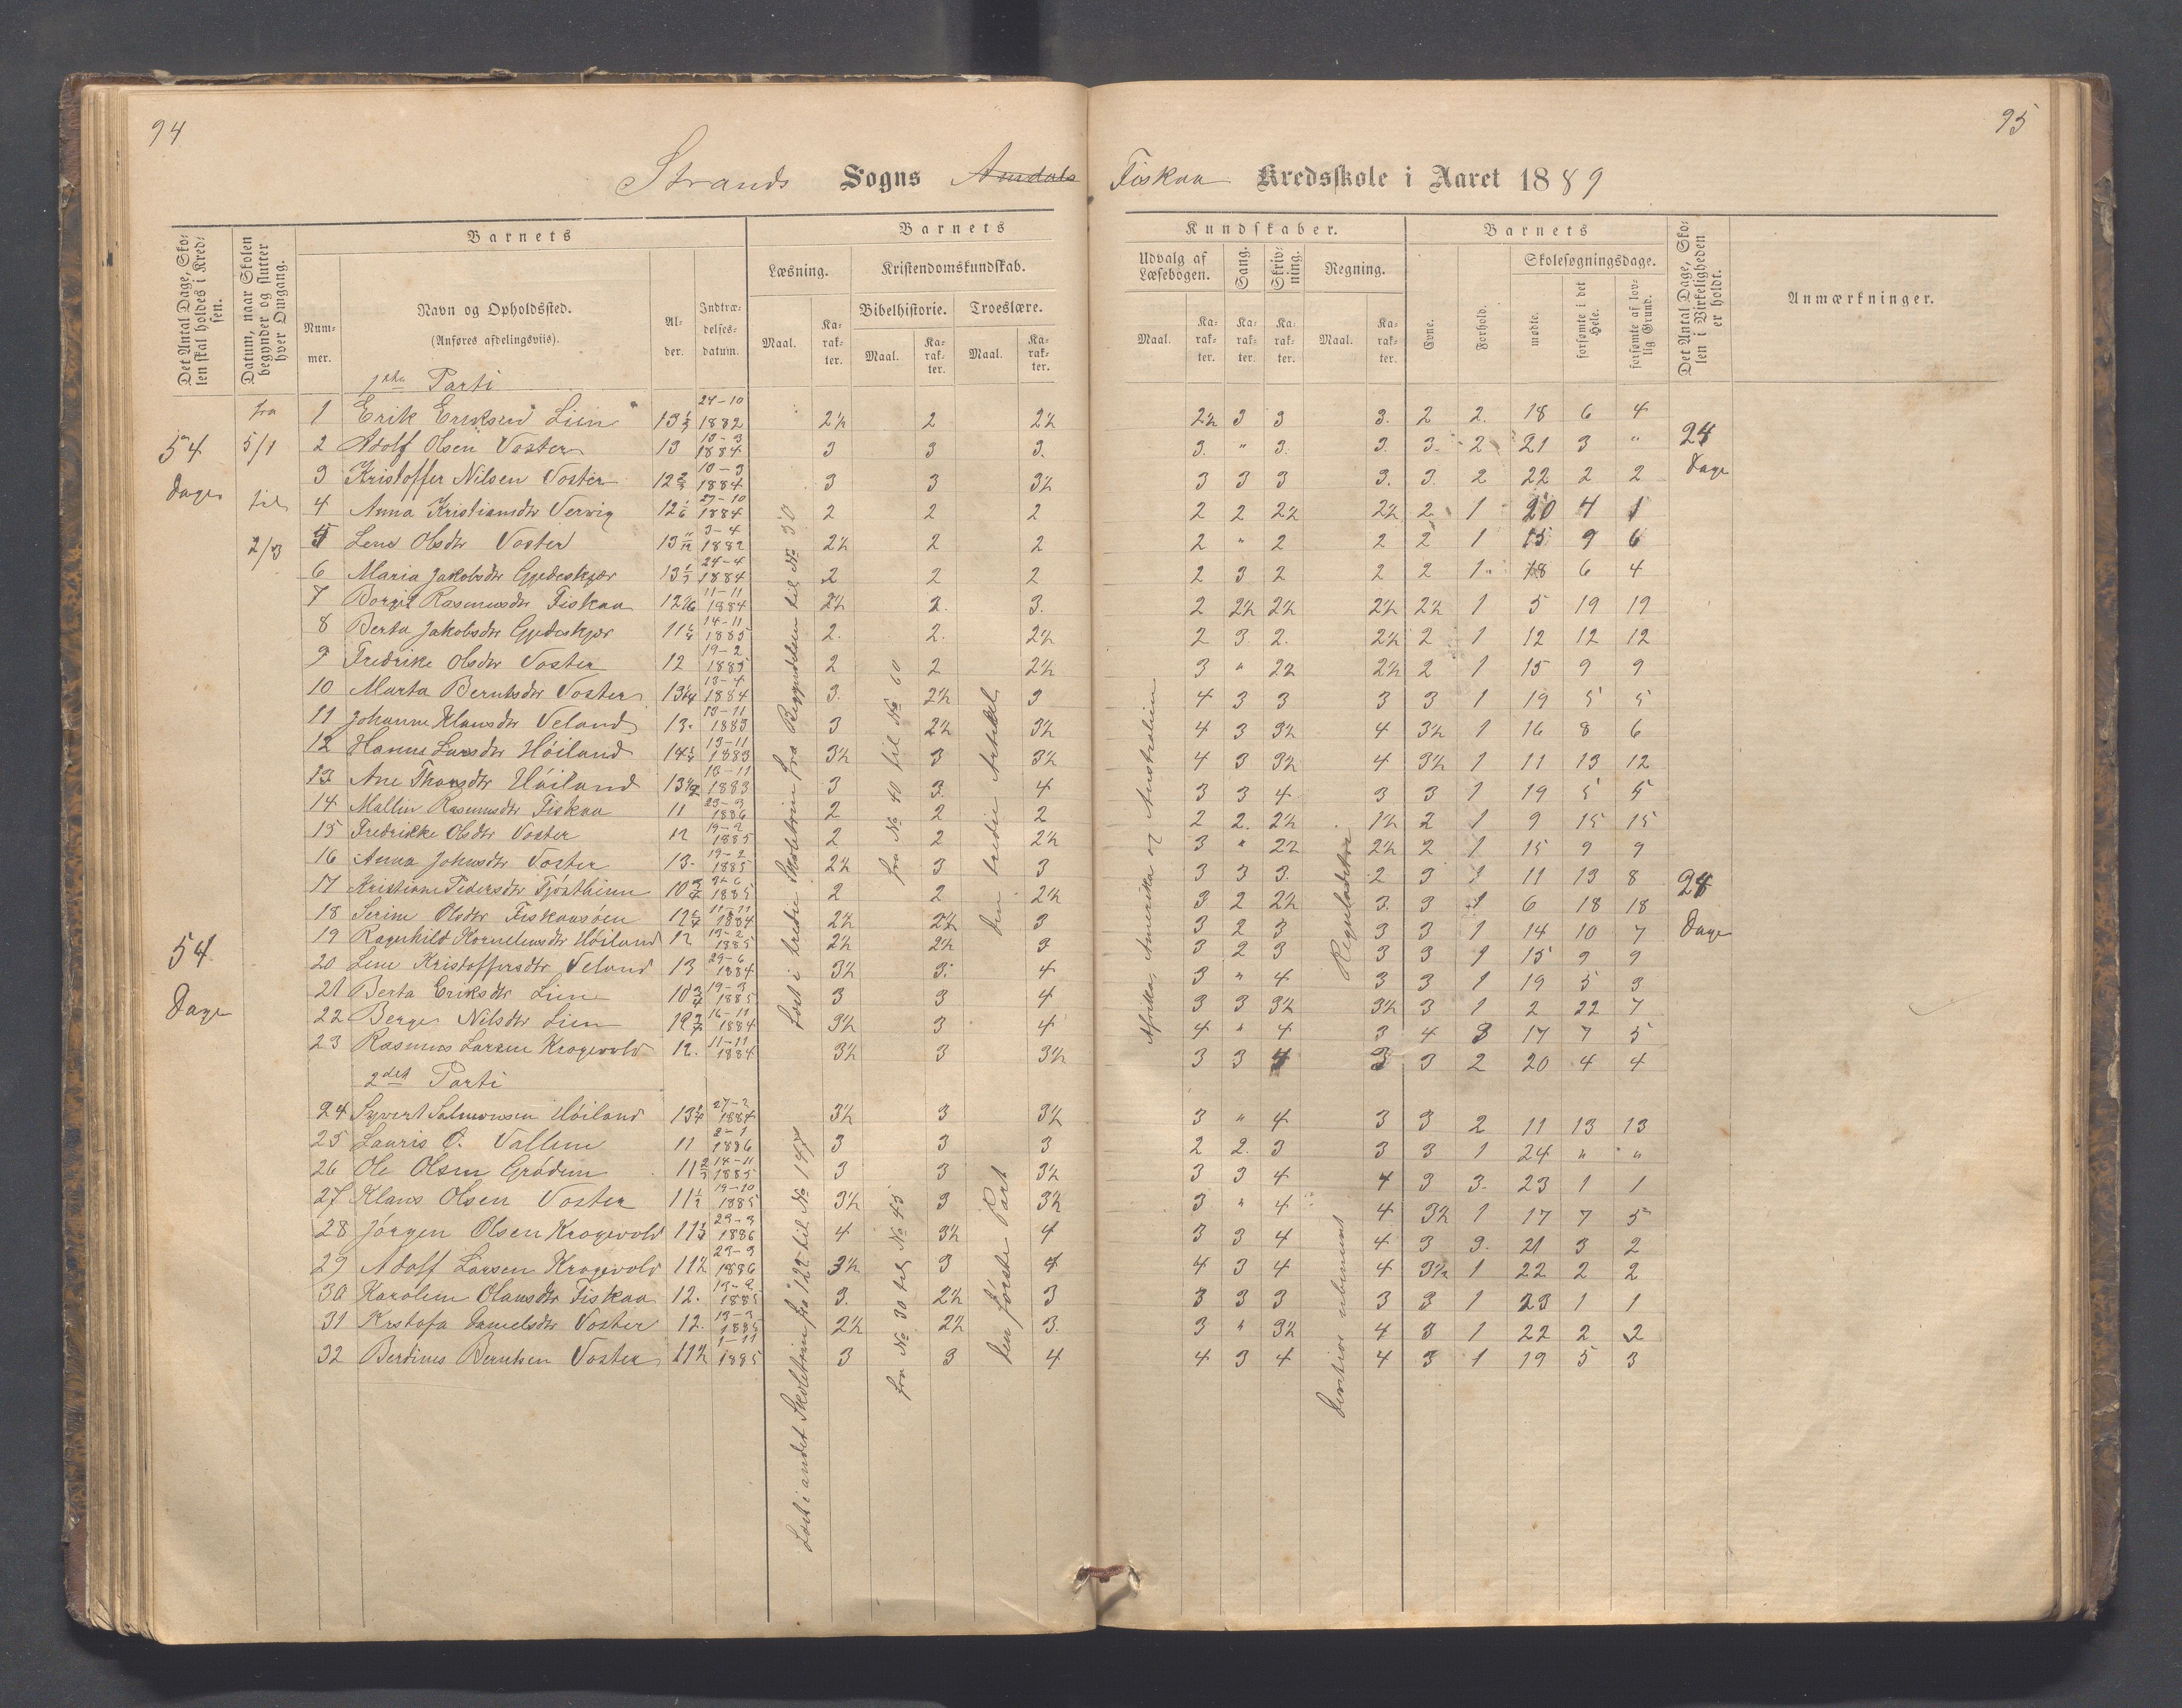 94
95
Strands Sogns Amdals Fiskaa Kredsskole i Aaret 1889
Det Antal Dage, Skolen skal holdes i Kredsen.
Datum, naar Skolen begynder og slutter hver Omgang.
Barnets
Nummer.
Navn og Opholdssted.
(Anføres afdelingsviis).
Alder.
Indtrædelsesdatum.
Barnets
Læsning.
Maal.
Karakter.
Kristendomskundskab.
Bibelhistorie.
Maal.
Karakter.
Troeslære.
Maal.
Karakter.
Kundskaber.
Udvalg af Læsebogen.
Maal.
Karakter.
Sang.
Karakter.
Skrivning.
Karakter.
Regning.
Maal.
Karakter.
Barnets
Evne.
Forhold.
Skolesøgningsdage.
mødte.
forsømte i det Hele.
forsømte af lovlig Grund.
Det Antal Dage, Skolen i Virkeligheden er holdt.
Anmærkninger.
1ste Parti
54 Dage
fra 5/1 til 2/3
24 Dage
1 Erik Eriksen Lien 13 1/3 24-10 1882 2½ 2 2½ 2½ 3 3 3. 2 2. 18 6 4
2 Adolf Olsen Voster 13 13-3 1884 3 3 3. 3. " 3. 3. 3. 2 21 3 "
3 Kristoffer Nilsen Voster 12 2/3 10-3 1884 3 3 3½ 3 3 3 3. 3. 2 22 2 2
4 Anna Kristiansdtr Vervig 12 1/6 27-10 1884 2 2 2 2 2 2½ 2½ 2 1 20 4 1
5 Lene Olsdtr Voster 13 11/12 3-4 1882 2½ 2 2 2 " 2 2 2 1 15 9 6
6 Maria Jakobsdtr Gjedeskjær 13 24-4 1884 2 2 2 2 3 2 2 2 1 18 6 4
7 Borgit Rasmusdtr Fiskaa 12 1/6 11-11 1884 2½ 2. 3. 2 2½ 2½ 2½ 2½ 1 5 19 19
8 Berta Jakobsdtr Gjedeskjær 11 14-11 1885 2. 2. 2½ 2 3. 2. 2½ 2 1 12 12 12
9 Fredrike Olsdtr Voster 12 19-2 1885 2 2 2½ 3 " 2½ 2½ 2 1 15 9 9
10 Marta Berntsdtr Voster 13 1/4 13-4 1884 3. 2½ 3 4 3 3 3 3 1 19 5 5
11 Johanne Klausdtr Veland 13. 13-11 1883 3 2½ 3½ 4 3 3½ 4 3½ 1 16 8 6
12 Hanne Larsdtr Høiland 14 13-11 1883 3½ 3 3½ 4 3 3½ 4 3½ 1 11 13 12
13 Ane Thorsdtr Høiland 13½ 13-11 1883 3 3. 4 3 3 4 3 3 1 19 5 5
14 Mallin Rasmusdtr Fiskaa 11 23-3 1886 2 2 2 2 2. 2½ 1½ 2 1 9 15 15
15 Fredrikke Olsdtr Voster 12 19-2 1885 2 2 2½ 3 " 2½ 2½ 2 1 15 9 9
16 Anna Johnsdtr Voster 13. 19-2 1885 2½ 3 3 3 3 3. 2 3 1 11 13 8
17 Kristiane Pedersdtr Tjøstheim 10 1885 2 2 2½ 3 2 2½ 3. 3 1 6 18 18
18 Serine Olsdtr Fiskaasøen 12 11-11 1884 2½ 2½ 3 3 2 3 3 3 1 14 10 7
19 Ragnhild Korneliusdtr Høiland 12 13-2 1885 2½ 2½ 3 3 2 3 3 3 1 15 9 9
20 Lene Kristoffersdtr Veland 13 29-6 1884 3½ 3. 4 3 " 4 3 3 1 19 5 3
21 Berta Eriksdtr Lien 10 3/4 19-3 1885 3 3 4 3 3 3½ 3½ 3 1 2 22 7
22 Berge Nilsdtr Lien 12 16-11 1884 3½ 3 4 4 " 4 3 4 3 17 7 5
23 Rasmus Larsen Krogevold 12. 11-11 1884 3½ 3 3½ 3 3 4 3 3 2 20 4 4
Læst i tredie Skoletrin fra Begyndelsen til No 30
fra No 40 til No 60
den tredie Artikel
Afrika, Amerika og Australien
Reguladetri
54 Dage
24 Dage
2det Parti
24 Syvert Salmonsen Høiland 13 27-2 1884 3½ 3 3½ 3 " 4 3 3 2 11 13 13
25 Lauris O. Vallem 11 2-1 1886 3 3 3 2 2. 3 3 3 1 24 " "
26 Ole Olsen Grødem 11 2/3 14-11 1885 3 3 3½ 3 3 4 4 3 3. 23 1 1
27 Klaus Olsen Voster 11 19-10 1885 3½ 3 3½ 3 " 4 4 3½ 1 17 7 5
28 Jørgen Olsen Krogevold 11 23-3 1886 4 3½ 4 3 3 4 4 3 3. 21 3 2
29 Adolf Larsen Krogevold 11½ 23-3 1886 3½ 3 4 4 3 4 4 3½ 1 22 2 2
30 Karoline Olausdtr Fiskaa 12. 13-2 1885 3. 2½ 3 3 3 3 3 3 1 23 1 1
31 Kristofa Danielsdtr Voster 12. 13-3 1885 2½ 2½ 3. 3 " 3½ 4 3 1 22 2 2
32 Berdines Berntsen Voster 11½ 1-11 1885 3 3 4 4 3 4 4 3 1 19 5 3
Læst i andet Skoletrin fra 122 til No 147
fra No 30 til No 45
den første Part
Division ubenævnt